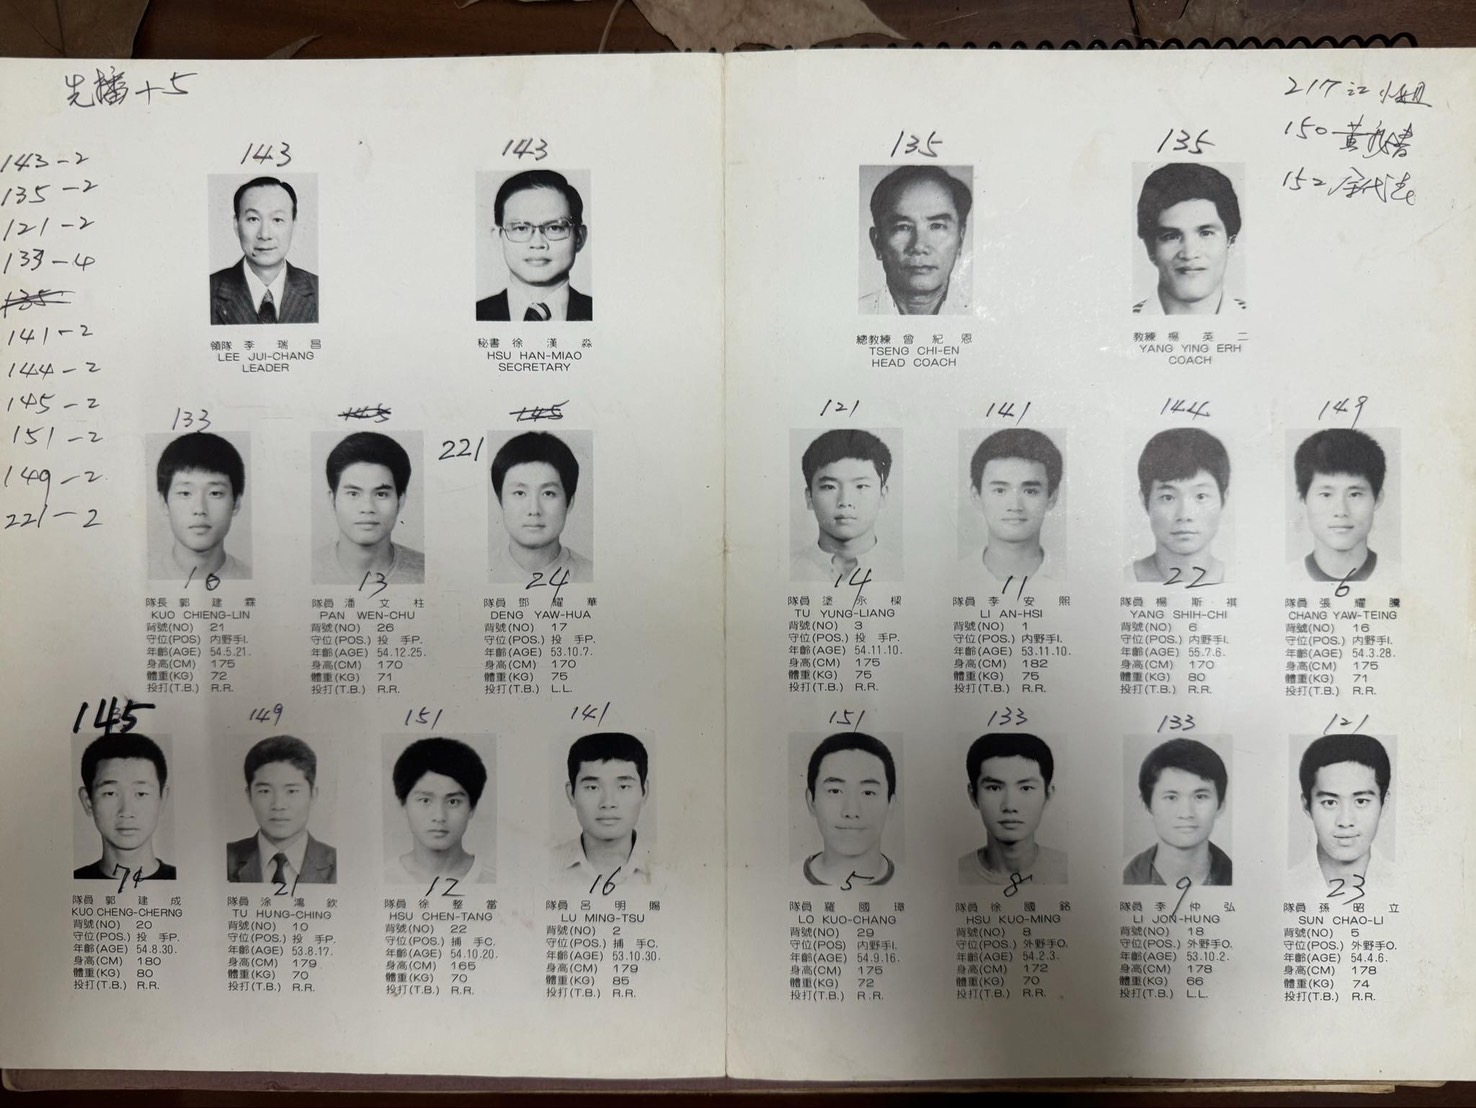 先播+5
143-2
135-2
121-2
133-4
135
141-2
144-2
145-2
151-2
149-2
221-2
143
領隊 李瑞昌
LEE JUI-CHANG
LEADER
143
秘書 徐漢淼
HSU HAN-MIAO
SECRETARY
133
10
隊長 郭建霖
KUO CHIENG-LIN
背號(NO) 21
守位(POS) 內野手I.
年齡(AGE) 54.5.21.
身高(CM) 175
體重(KG) 72
投打(T.B.) R.R.
145
13
隊員 潘文柱
PAN WEN-CHU
背號(NO) 26
守位(POS.) 投 手P.
年齡(AGE) 54.12.25.
身高(CM) 170
體重(KG) 71
投打(T.B.) R.R.
145
221
24
隊員 鄧耀華
DENG YAW-HUA
背號(NO) 17
守位(POS.) 投 手P.
年齡(AGE) 53.10.7.
身高(CM) 170
體重(KG) 75
投打(T.B.) L.L.
145
74
隊員 郭建成
KUO CHENG-CHERNG
背號(NO) 20
守位(POS.) 投 手P.
年齡(AGE) 54.8.30.
身高(CM) 180
體重(KG) 80
投打(T.B.) R.R.
149
21
隊員 涂鴻欽
TU HUNG-CHING
背號(NO) 10
守位(POS.) 投 手P.
年齡(AGE) 53.8.17.
身高(CM) 179
體重(KG) 70
投打(T.B.) R.R.
151
12
隊員 徐整當
HSU CHEN-TANG
背號(NO) 22
守位(POS.) 捕 手C.
年齡(AGE) 54.10.20.
身高(CM) 165
體重(KG) 70
投打(T.B.) R.R.
141
16
隊員 呂明賜
LU MING-TSU
背號(NO) 2
守位(POS.) 捕 手C.
年齡(AGE) 53.10.30.
身高(CM) 179
體重(KG) 85
投打(T.B.) R.R.
217 江小姐
150
152
135
總教練 曾紀恩
TSENG CHI-EN
HEAD COACH
135
教練 楊英二
YANG YING ERH
COACH
121
14
隊員 塗永樑
TU YUNG-LIANG
背號(NO) 3
守位(POS.) 投 手P.
年齡(AGE) 54.11.10.
身高(CM) 175
體重(KG) 75
投打(T.B.) R.R.
141
11
隊員 李安熙
LI AN-HSI
背號(NO) 1
守位(POS.) 內野手I.
年齡(AGE) 53.11.10.
身高(CM) 182
體重(KG) 75
投打(T.B.) R.R.
144
22
隊員 楊斯祺
YANG SHIH-CHI
背號(NO) 6
守位(POS.) 內野手I.
年齡(AGE) 55.7.6.
身高(CM) 170
體重(KG) 80
投打(T.B.) R.R.
149
6
隊員 張耀騰
CHANG YAW-TEING
背號(NO) 16
守位(POS.) 內野手I.
年齡(AGE) 54.3.28.
身高(CM) 175
體重(KG) 71
投打(T.B.) R.R.
151
5
隊員 羅國璋
LO KUO-CHANG
背號(NO) 29
守位(POS) 內野手I.
年齡(AGE) 54.9.16.
身高(CM) 175
體重(KG) 72
投打(T.B.) R.R.
133
8
隊員 徐國銘
HSU KUO-MING
背號(NO) 8
守位(POS.) 外野手O.
年齡(AGE) 54.2.3.
身高(CM) 172
體重(KG) 70
投打(T.B.) R.R.
133
9
隊員 李仲弘
LI JON-HUNG
背號(NO) 18
守位(POS.) 外野手O.
年齡(AGE) 53.10.2.
身高(CM) 178
體重(KG) 66
投打(T.B.) L.L.
121
23
隊員 孫昭立
SUN CHAO-LI
背號(NO) 5
守位(POS.) 外野手O.
年齡(AGE) 54.4.6.
身高(CM) 178
體重(KG) 74
投打(T.B.) R.R.